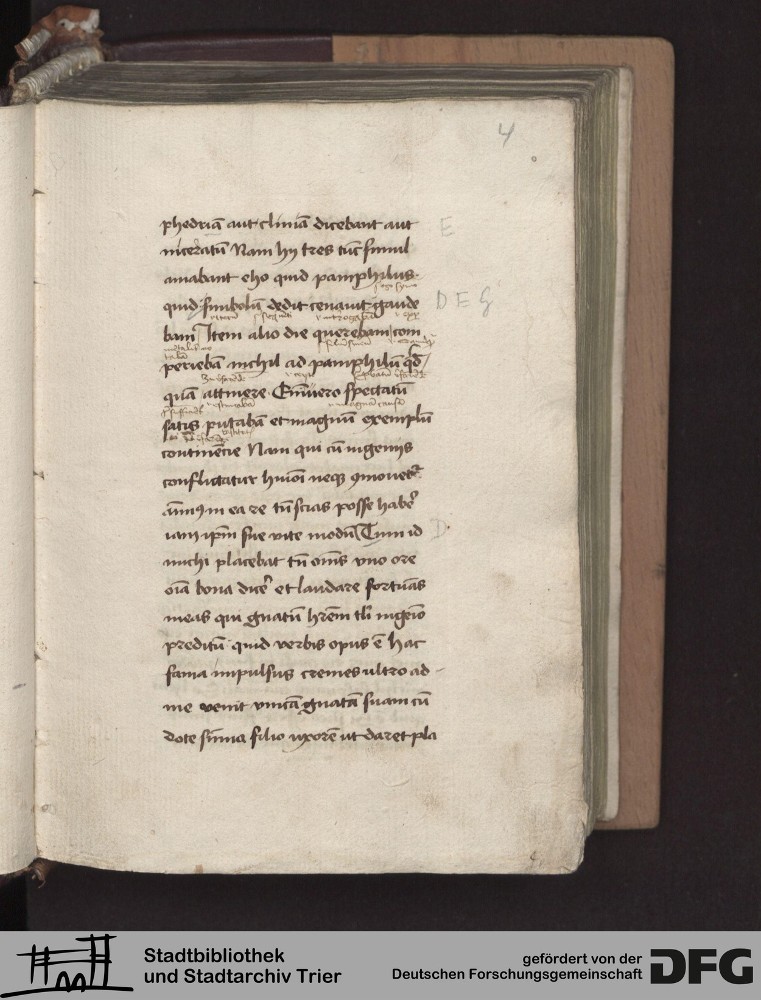 4
phedriā aut cliniā dicebant aut
E
niceratū Nam hy tres tūc simul
amabant eho quid pamphilus
quid simbolū dedit cenauit gaude
D E G
bam Item alio die querebam com
periebā nichil ad pamphilū qd
quā attinere Enīuero spectatū
satis putabā et magnū exemplū
continēcie Nam qui cū ingenijs
conflictatur huiōi neqꝫ ꝯmouetr
aīmꝰ in ea re tn̄ scias posse haberˀ
iam ipm̄ sue vite modū Tum id
D
michi placebat tū om̄s vno ore
oīa bona dicerˀ et laudare fortūas
meas qui gnatū hrēm tli ingeīo
preditū quid verbis opus ē hac
fama impulsus cremes ultro ad
me venit vnicā gnatā suam cū
dote sūma filio uxorē ut daret pla
Stadtbibliothek
und Stadtarchiv Trier
gefördert von der
Deutschen Forschungsgemeinschaft
DFG